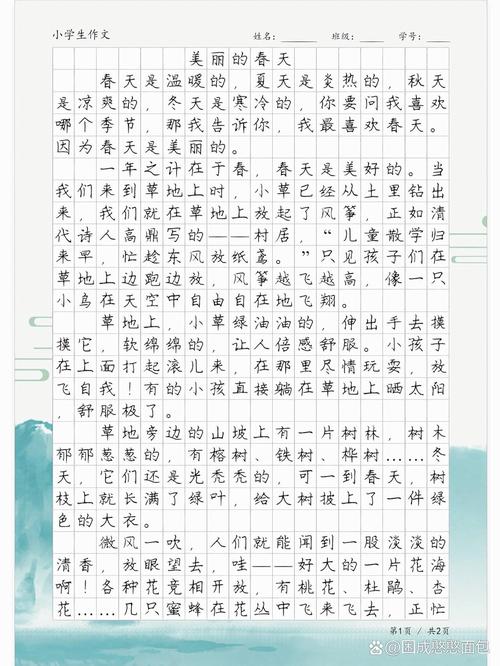 小学生作文 姓名: 班级: 学号:
美丽的春天
春天是温暖的，夏天是炎热的，秋天
是凉爽的，冬天是寒冷的，你要问我喜欢
哪个季节，那我告诉你，我最喜欢春天。
因为春天是美丽的。
一年之计在于春，春天是美好的。当
我们来到草地上时，小草已经从土里钻出
来，我们就在草地上放起了风筝，正如清
代诗人高鼎写的——村居，“儿童散学归
来早，忙趁东风放纸鸢。”只见孩子们在
草地上边跑边放，风筝越飞越高，像一只
小鸟在天空中自由自在地飞翔。
草地上，小草绿油油的，伸出手去摸
摸它，软绵绵的，让人倍感舒服。小孩子
在上面打起滚儿来，在那里尽情玩耍，放
飞自我！有的小孩直接躺在草地上晒太阳
，舒服极了。
草地旁边的山坡上有一片树林，树木
郁郁葱葱的，有榕树、铁树、桦树……冬
天，它们还是光秃秃的，可一到春天，树
枝上就长满了绿叶，给大树披上了一件绿
色的大衣。
微风一吹，人们就能闻到一股淡淡的
清香，放眼望去，哇——好大的一片花海
啊！各种花竞相开放，有桃花、杜鹃、杏
花……几只蜜蜂在花丛中飞来飞去，正忙
第1页 / 共2页
困成憨憨面包